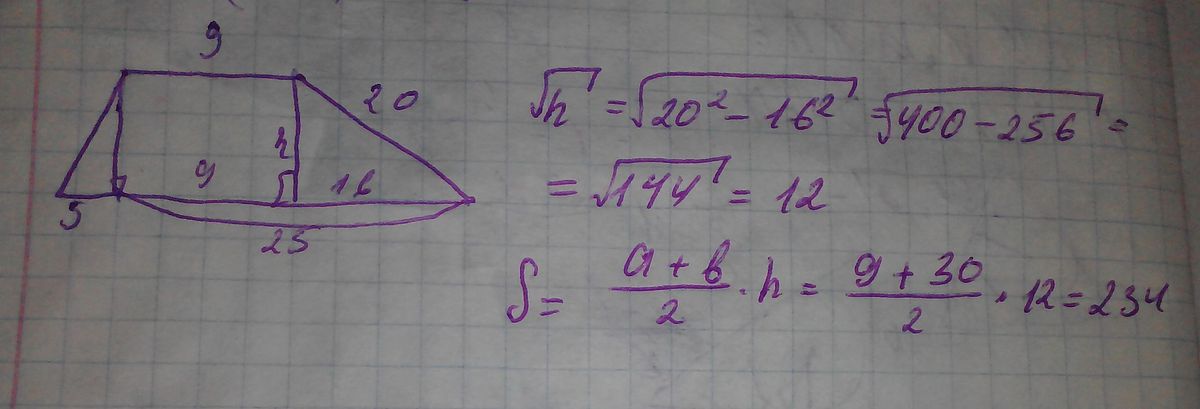 9
20
h
9
16
5
25
√h = √20² - 16² = √400 - 256 =
= √144 = 12
S = a + b / 2 · h = 9 + 30 / 2 · 12 = 234